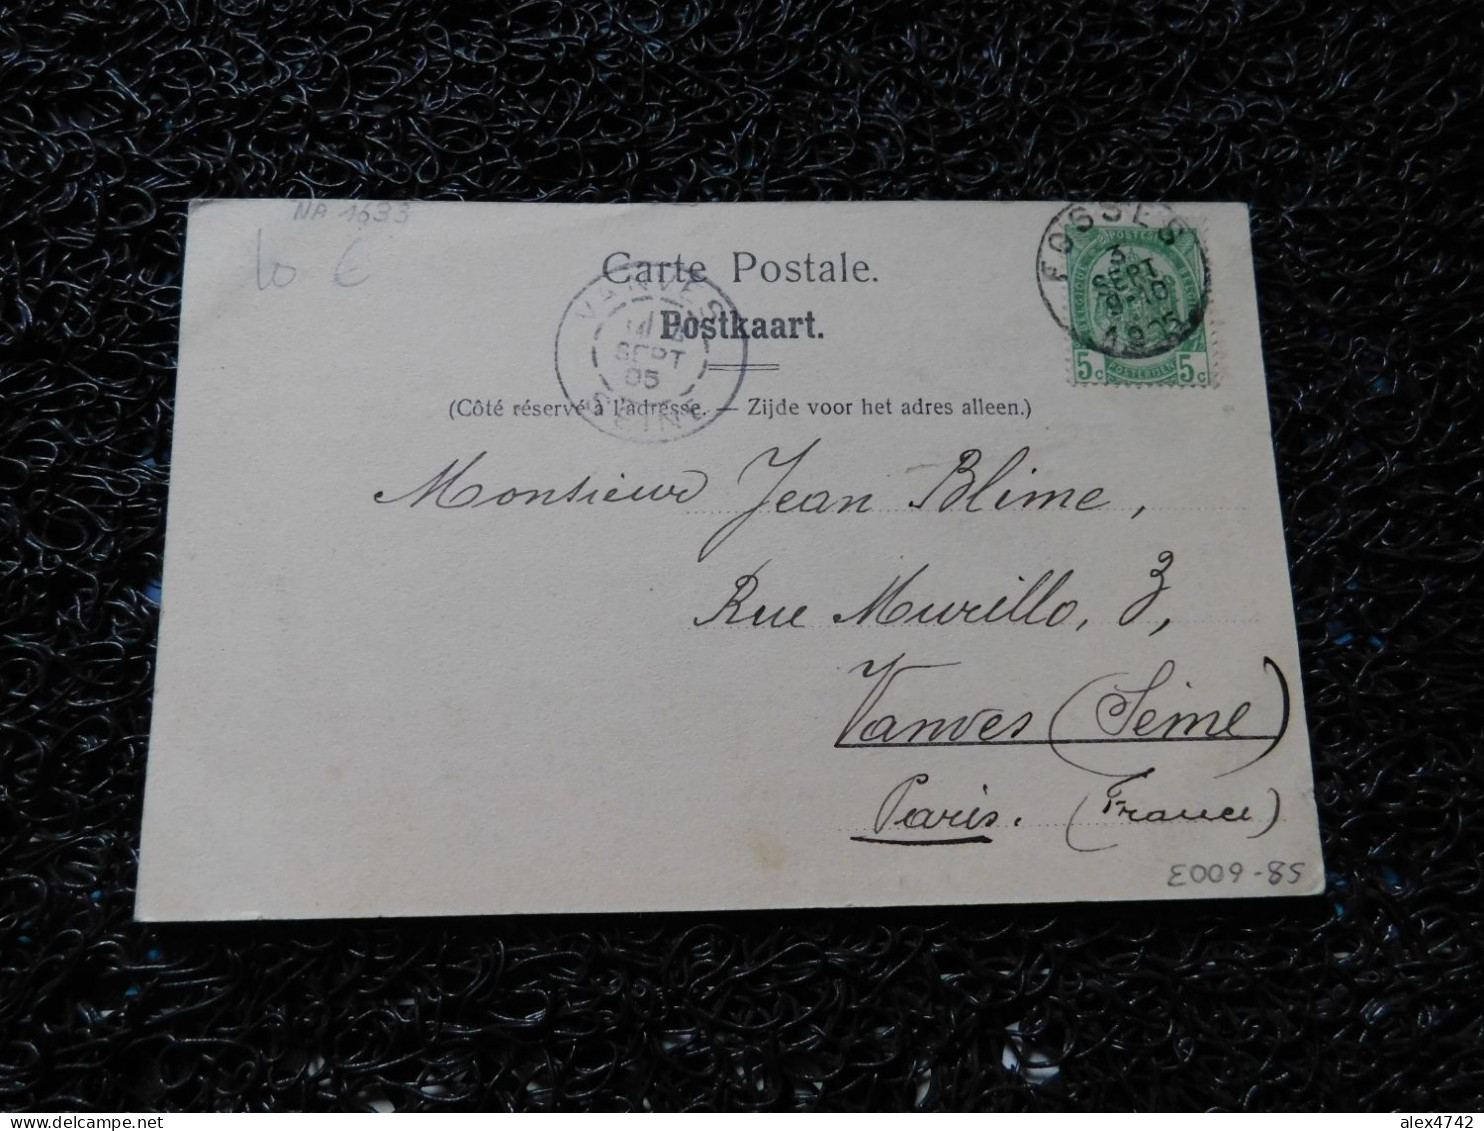 NA 1633
10 €
Carte Postale.
Postkaart.
(Côté réservé à l'adresse. — Zijde voor het adres alleen.)
FOSSES
3
SEPT
9-10
1905
POSTERIJEN
5c 5c
VANVES
SEPT
05
SEINE
Monsieur Jean Blime,
Rue Murillo, 3,
Vanves (Seine)
Paris. (France)
58-6003
alex4742